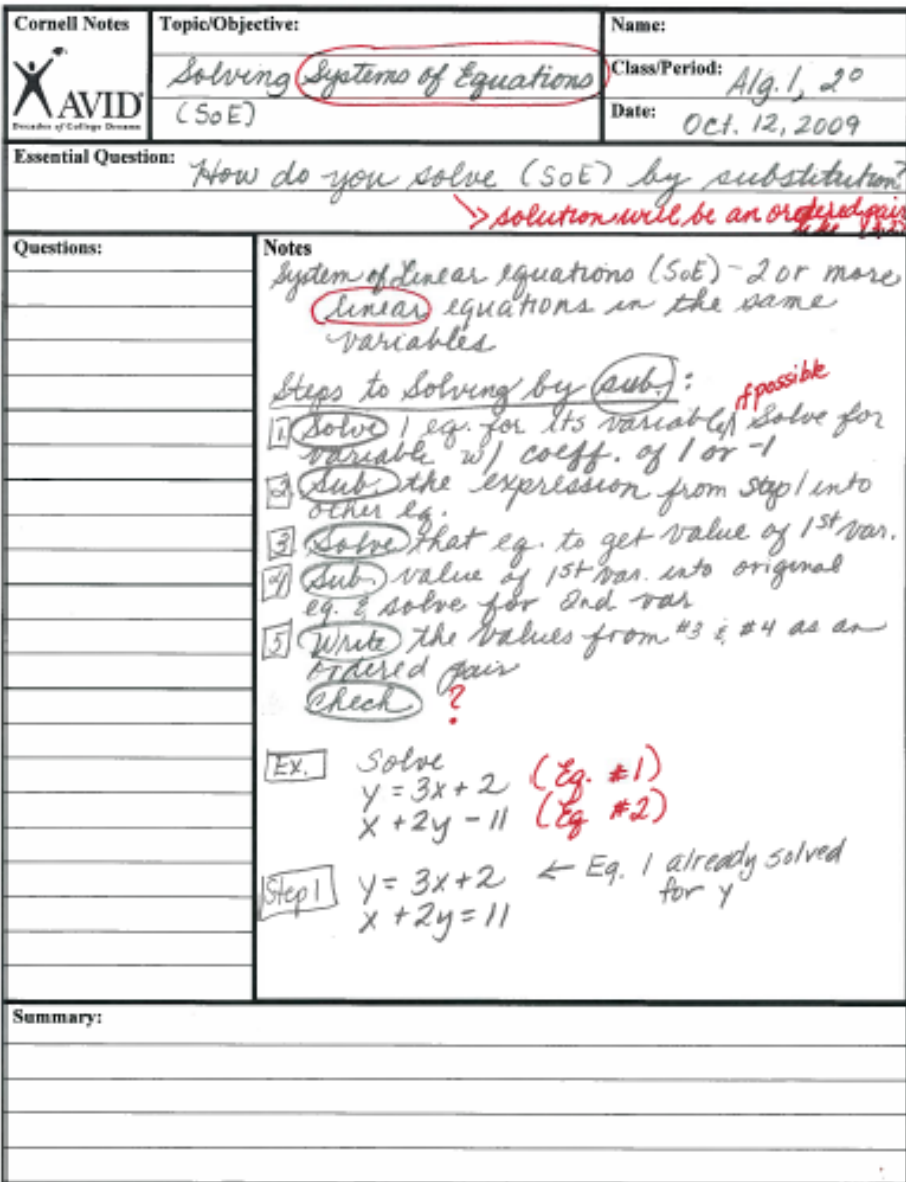 Cornell Notes
AVID
Decades of College Dreams
Topic/Objective:
Solving Systems of Equations
(SoE)
Name:
Class/Period: Alg. 1, 2°
Date: Oct. 12, 2009
Essential Question: How do you solve (SoE) by substitution?
> solution will be an ordered pair
Questions:
Notes
System of Linear equations (SoE) - 2 or more
linear equations in the same
variables
Steps to Solving by sub.:
if possible
1. Solve 1 eq. for its variable, Solve for
variable w/ coeff. of 1 or -1
2 Sub. the expression from step 1 into
other eq.
3 Solve that eq. to get value of 1st var.
4 Sub value of 1st var. into original
eq. & solve for 2nd var
5 Write the values from #3 & #4 as an
ordered pair
Check ?
Ex. Solve
y = 3x + 2 (Eq. #1)
x + 2y - 11 (Eq #2)
Step 1 y = 3x + 2 ← Eq. 1 already solved
for y
x + 2y = 11
Summary: